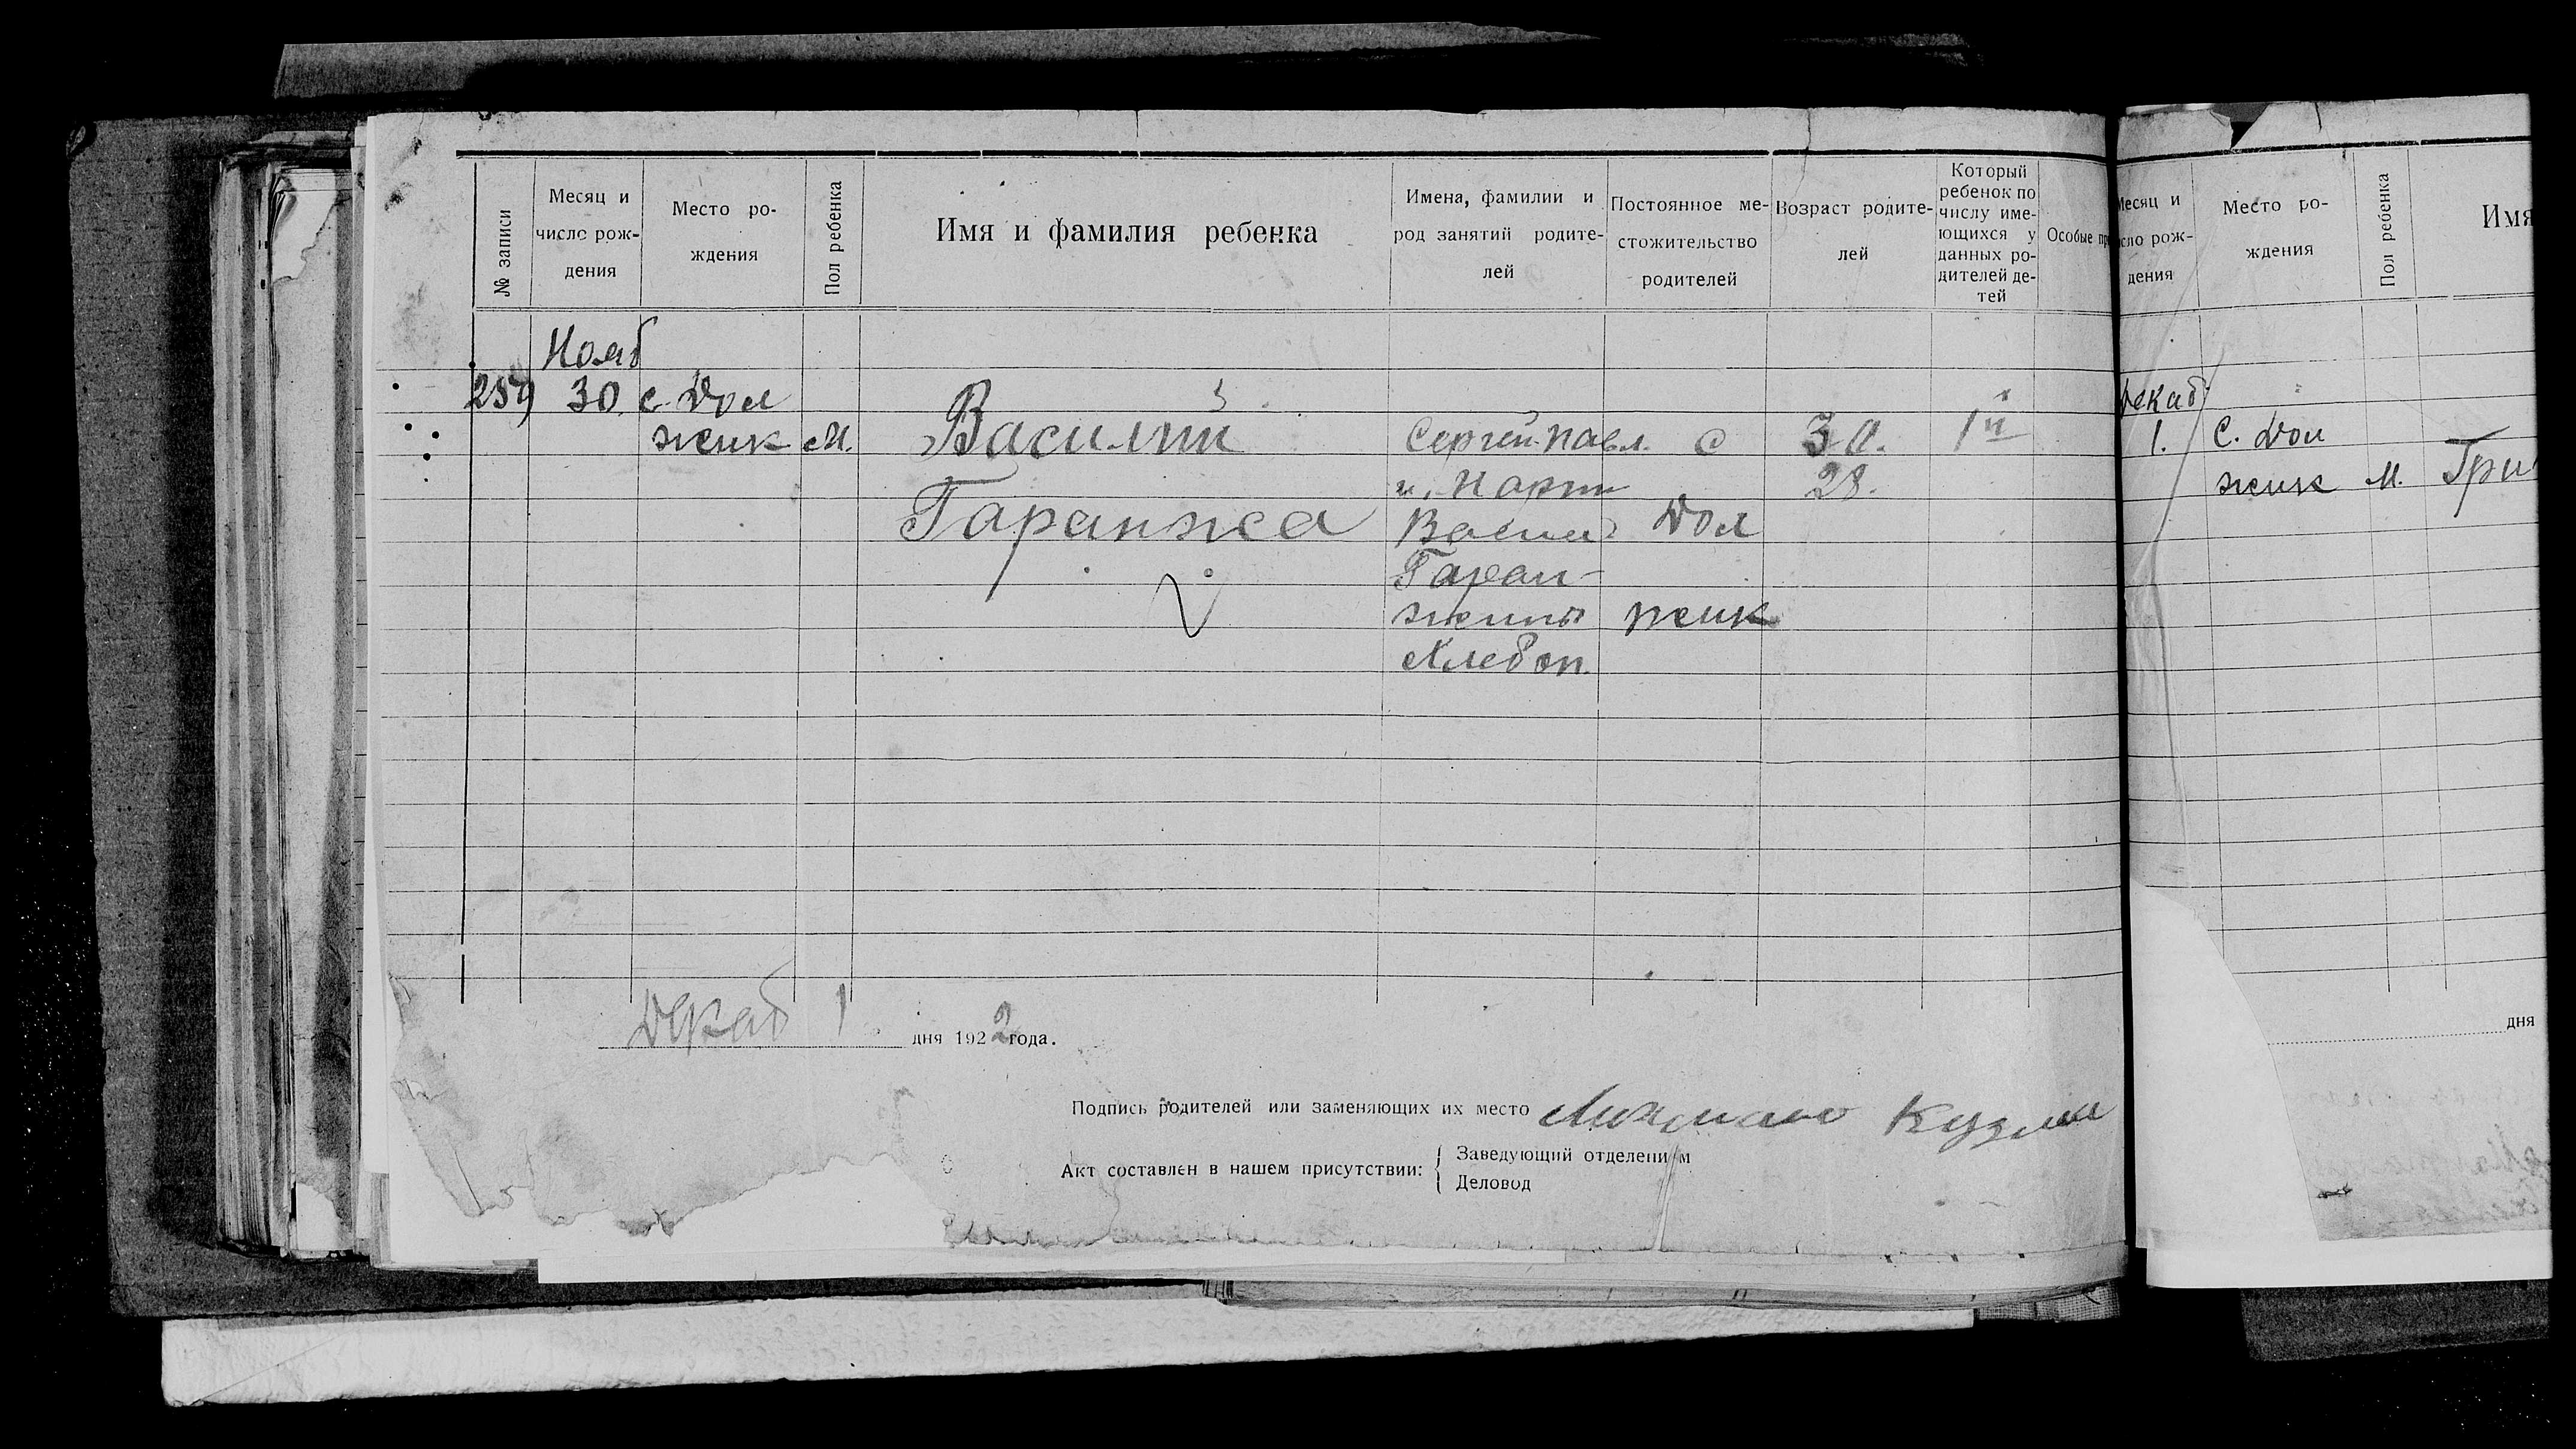 № записи
Месяц и
число рож-
дения
Место ро-
ждения
Пол ребенка
Имя и фамилия ребенка
Имена, фамилии и
род занятий родите-
лей
Постоянное ме-
стожительство
родителей
Возраст родите-
лей
Который
ребенок по
числу име-
ющихся у
данных ро-
дителей де-
тей
Особые пр
Нояб
259 30. с. Дол
жик М.
Василий
Гаранжа
Сергей Павл.
и Марти
Васил
Гаран-
жины
Хлебоп.
с
Дол
жик
30.
28.
1й
Декаб 1 дня 1922 года.
Подпись родителей или заменяющих их место Кузма
Акт составлен в нашем присутствии:
Заведующий отделением
Деловод
Месяц и
сло рож-
дения
Место ро-
ждения
Пол ребенка
Имя
Декаб
1. С. Дол
жик М. Гри
дня